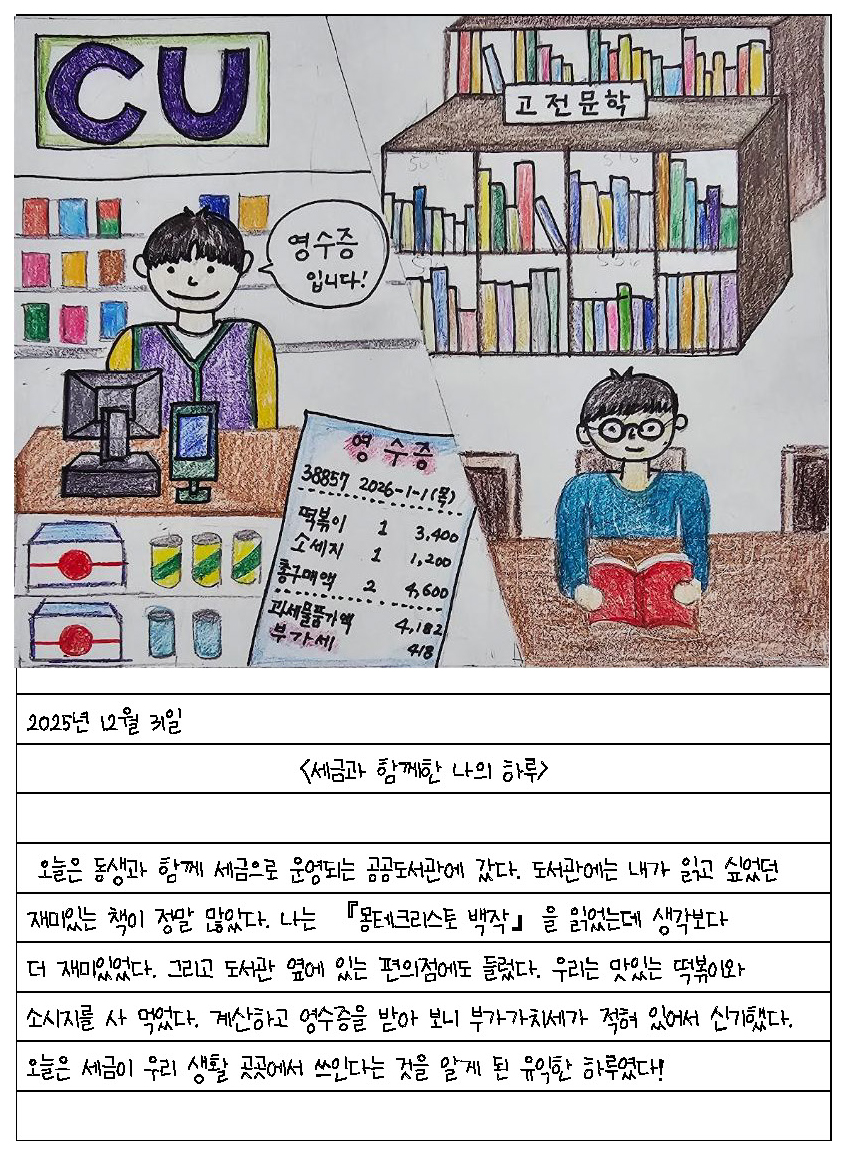 CU
고전문학
영수증
입니다!
영수증
38857 2026-1-1(목)
떡볶이 1 3,400
소세지 1 1,200
총구매액 2 4,600
과세물품가액 4,182
부가세 418
2025년 12월 31일
<세금과 함께한 나의 하루>
오늘은 동생과 함께 세금으로 운영되는 공공도서관에 갔다. 도서관에는 내가 읽고 싶었던
재미있는 책이 정말 많았다. 나는 『몽테크리스토 백작』 을 읽었는데 생각보다
더 재미있었다. 그리고 도서관 옆에 있는 편의점에도 들렀다. 우리는 맛있는 떡볶이와
소시지를 사 먹었다. 계산하고 영수증을 받아 보니 부가가치세가 적혀 있어서 신기했다.
오늘은 세금이 우리 생활 곳곳에서 쓰인다는 것을 알게 된 유익한 하루였다!